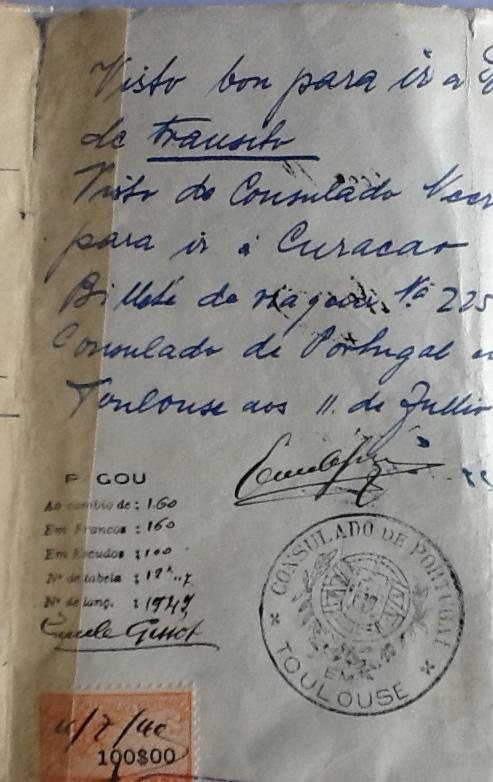 Visto bon para ir a
de transito
Visto do Consulado Neer
para ir á Curacao
Billete de viagem Nº 225
Consulado de Portugal
Toulouse aos 11. de Julho
PAGOU
Ao cambio de: 1.60
Em Francos: 160
Em Escudos: 100
Nº de tabela:
Nº de lanç. : 1947
Emile Gissot
CONSULADO DE PORTUGAL
EM
TOULOUSE
11/7/40
100$00